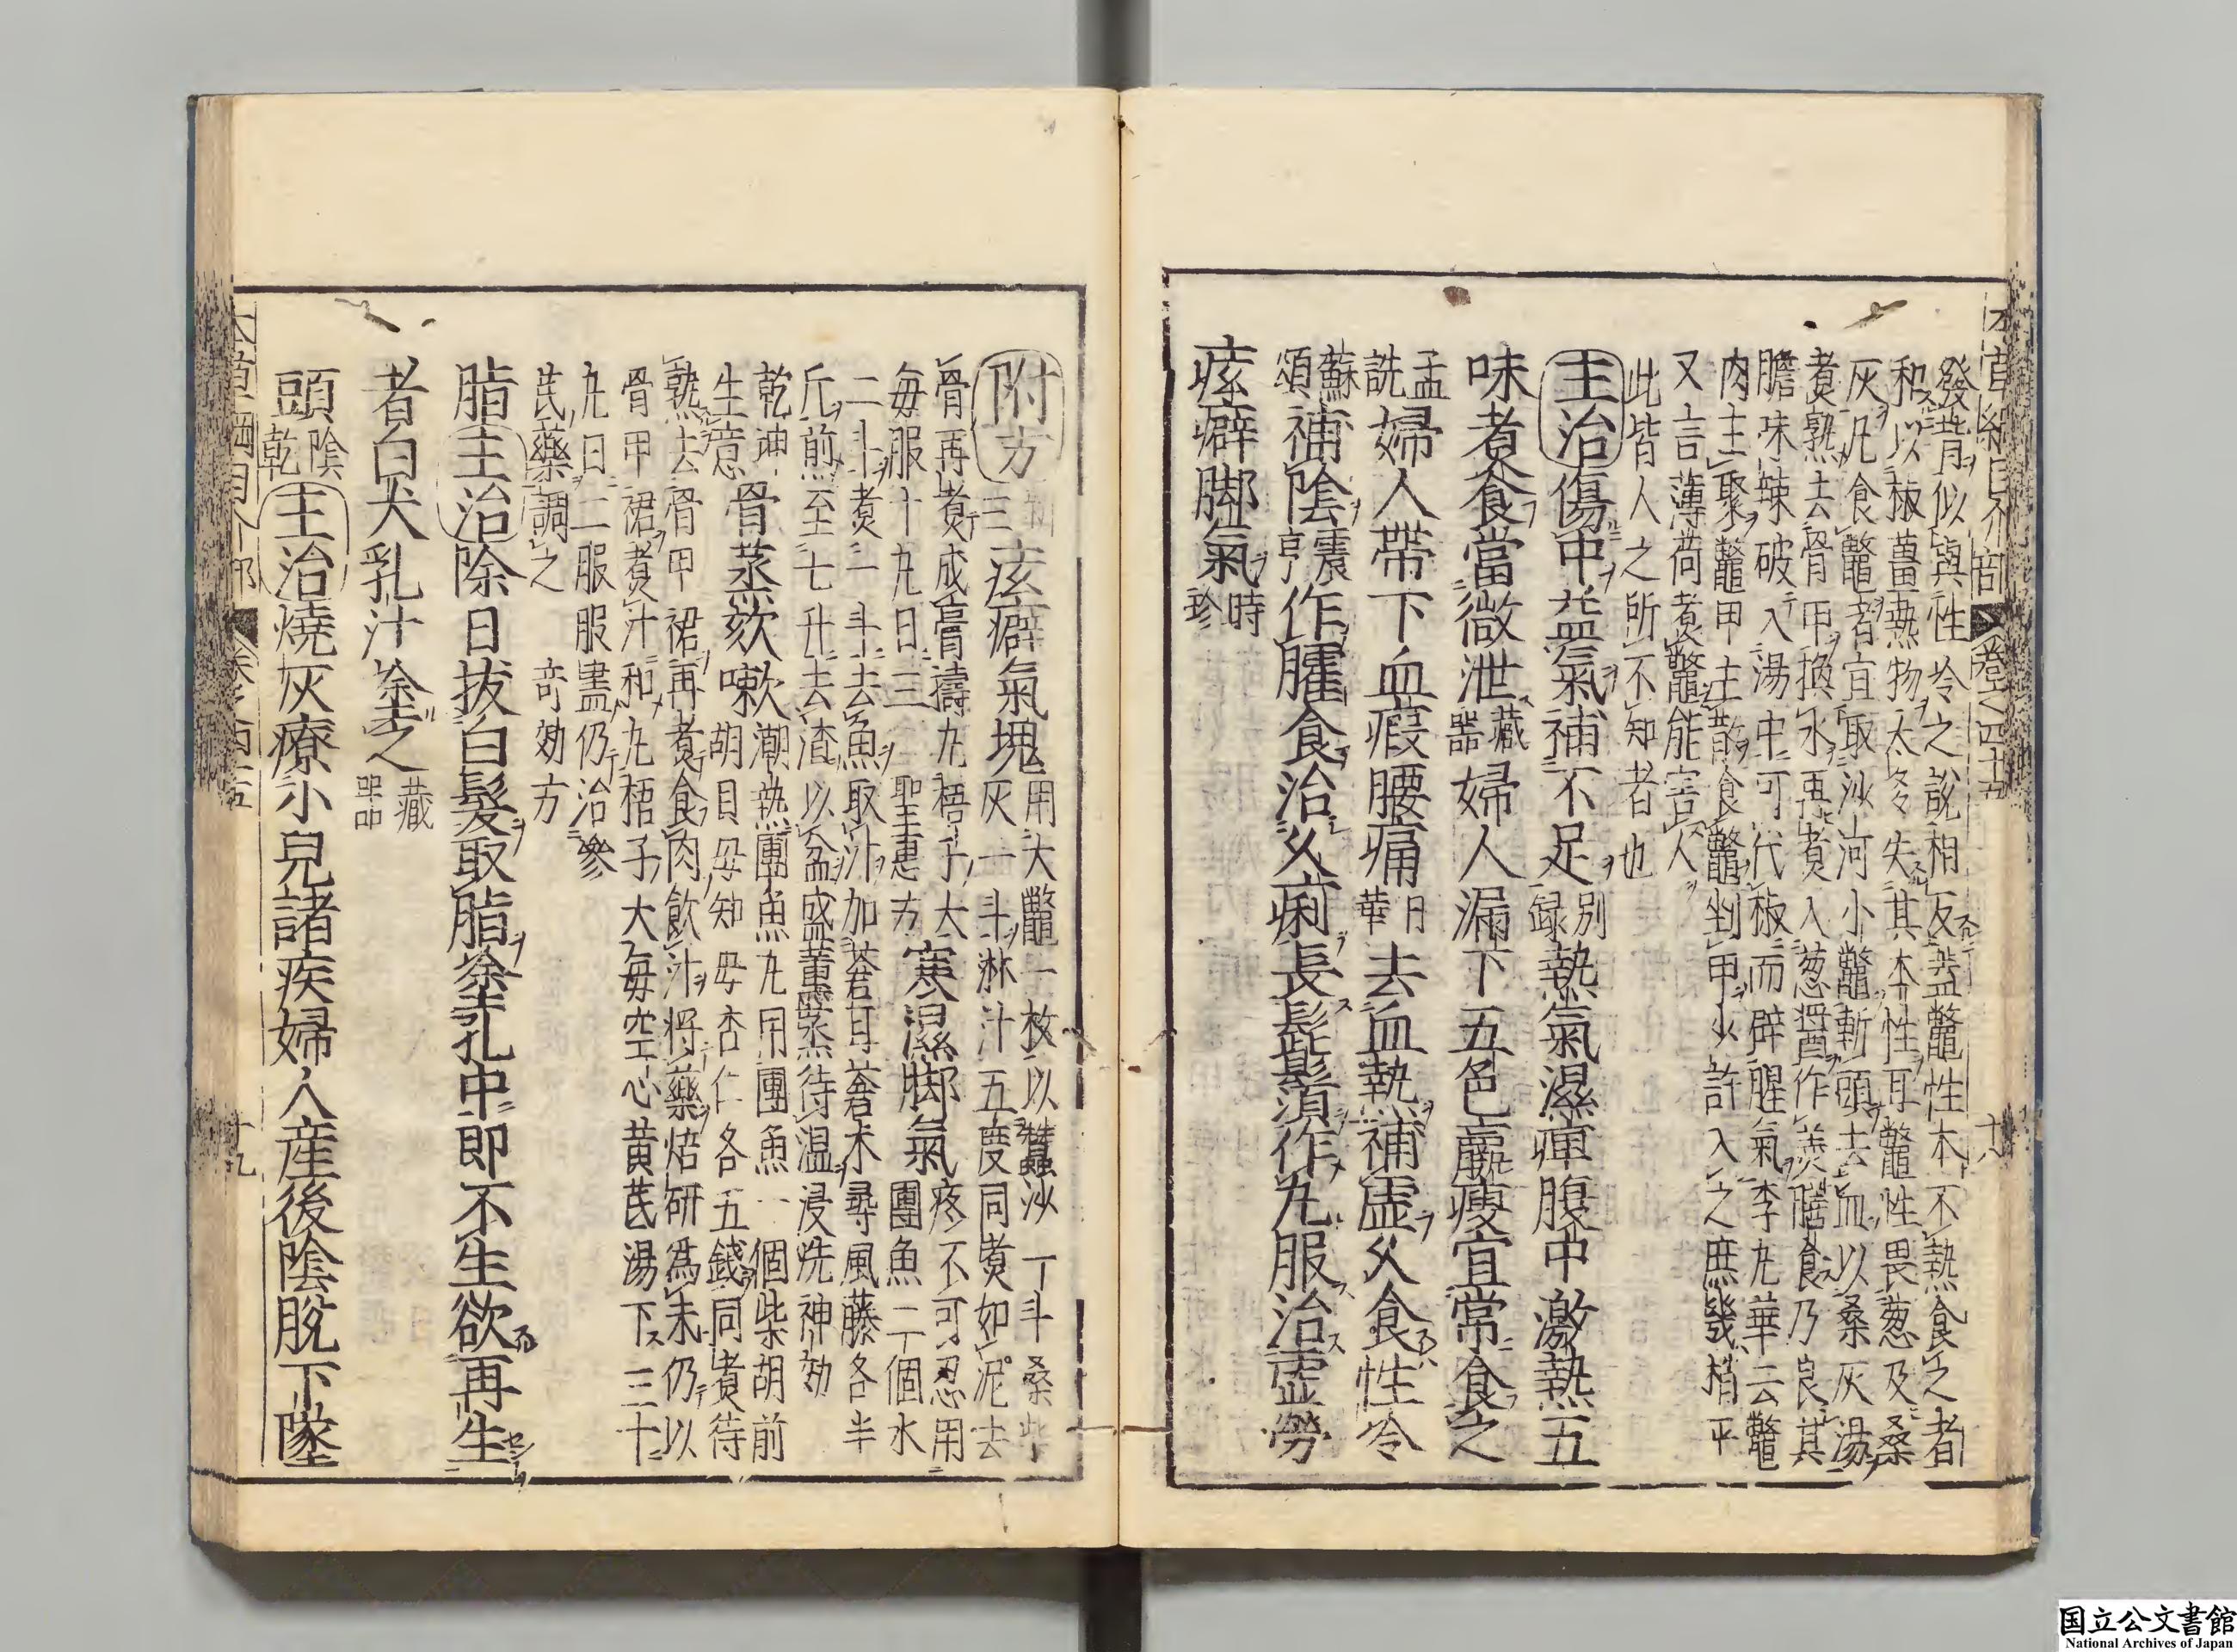 發背似與性冷之說相反蓋鼈性本不熱食之者
和以椒薑熱物太多失其本性耳鼈性畏葱及桑
灰凡食鼈者宜取沙河小鼈斬頭去血以桑灰湯
煮熟去骨甲換水再煮入葱醬作羹膳食乃良其
膽味辣破入湯中可代椒而辟腥氣李九華云鼈
肉主聚鼈甲主散食鼈剉甲少許入之庶幾稍平
又言薄荷煮鼈能害人
此皆人之所不知者也
主治傷中益氣補不足別録熱氣濕痺腹中激熱五
味煮食當微泄藏器婦人漏下五色羸瘦宜常食之
孟詵婦人帶下血瘕腰痛日華去血熱補虛久食性冷
蘇頌補陰震亨作臛食治久痢長髭鬚作丸服治虛勞
痃癖脚氣時珍
附方三痃癖氣塊用大鼈一枚以蠶沙一斗桑柴
灰一斗淋汁五度同煮如泥去
骨再煮成膏擣丸梧子大
每服十丸日三聖惠方寒濕脚氣疼不可忍用
團魚二個水
二斗煮二斗去魚取汁加蒼耳蒼朮尋風藤各半
斤煎至七升去渣以盆盛薰蒸待温浸洗神効
乾坤生意骨蒸欬嗽潮熱團魚丸用團魚一個柴胡前
胡貝母知母杏仁各五錢同煮待
熟去骨甲裙再煮食肉飲汁將藥焙研爲末仍以
骨甲裙煮汁和丸梧子大每空心黄芪湯下三十
丸日二服服盡仍治參
芪藥調之奇効方
脂主治除日拔白髮取脂塗孔中即不生欲再生
者白犬乳汁塗之藏器
頭陰乾主治燒灰療小兒諸疾婦人産後陰脫下墜
国立公文書館
National Archives of Japan